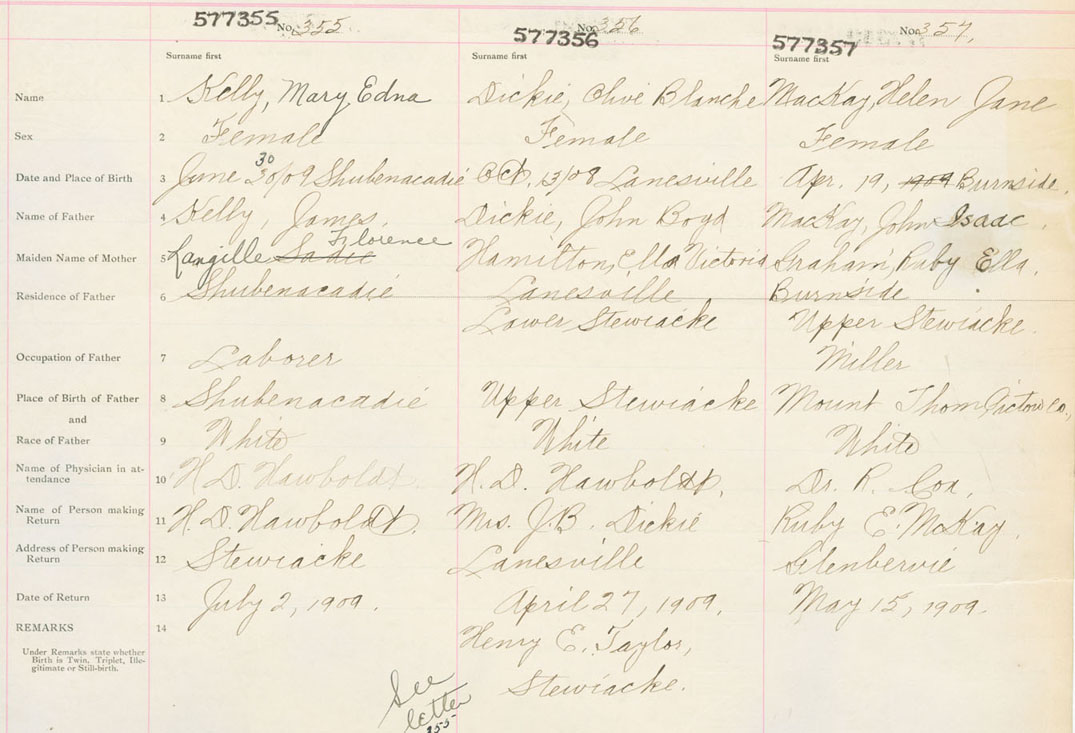 577355 No. 355 577356 No. 356 577357 No. 357,
Surname first Surname first Surname first
Name 1 Kelly, Mary Edna Dickie, Olive Blanche MacKay, Helen Jane
Sex 2 Female Female Female
30
Date and Place of Birth 3 June 30/09 Shubenacadie Oct. 13/08 Lanesville Apr. 19, 1909 Burnside.
Name of Father 4 Kelly, James. Dickie, John Boyd MacKay, John Isaac.
Florence
Maiden Name of Mother 5 Langille Sadie Hamilton, Ella Victoria Graham, Ruby Ella.
Residence of Father 6 Shubenacadie Lanesville Burnside
Lower Stewiacke Upper Stewiacke.
Occupation of Father 7 Laborer Miller
Place of Birth of Father 8 Shubenacadie Upper Stewiacke Mount Thom Pictou Co.,
and
Race of Father 9 White White White
Name of Physician in at-
tendance 10 H.D. Hawboldt. H.D. Hawboldt. Dr. R. Cox,
Name of Person making
Return 11 H.D. Hawboldt. Mrs. J.B. Dickie Ruby E. McKay.
Address of Person making
Return 12 Stewiacke Lanesville Glenbervie
Date of Return 13 July 2, 1909. April 27, 1909. May 15, 1909.
REMARKS 14 Henry E. Taylor,
Under Remarks state whether
Birth is Twin, Triplet, Ille-
gitimate or Still-birth.
Stewiacke.
See
letter
355